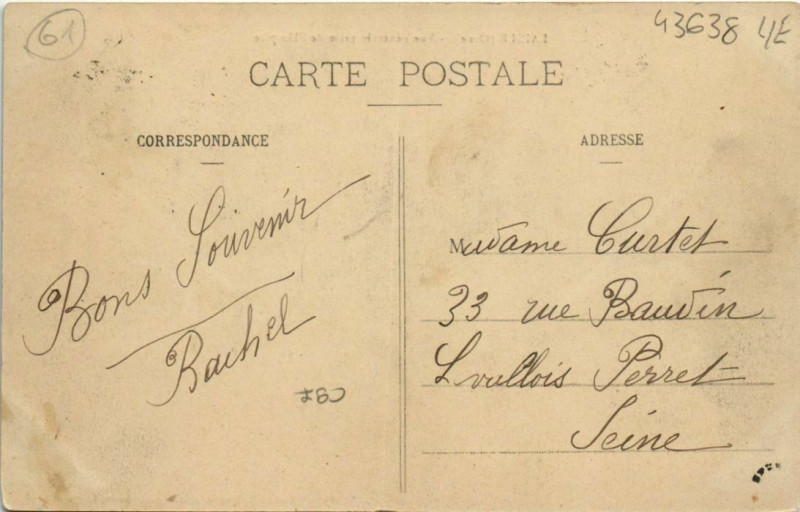 61
43638 YE
CARTE POSTALE
CORRESPONDANCE
ADRESSE
Bons Souvenir
Rachel
Madame Curtet
33 rue Baudin
Levallois Perret
Seine